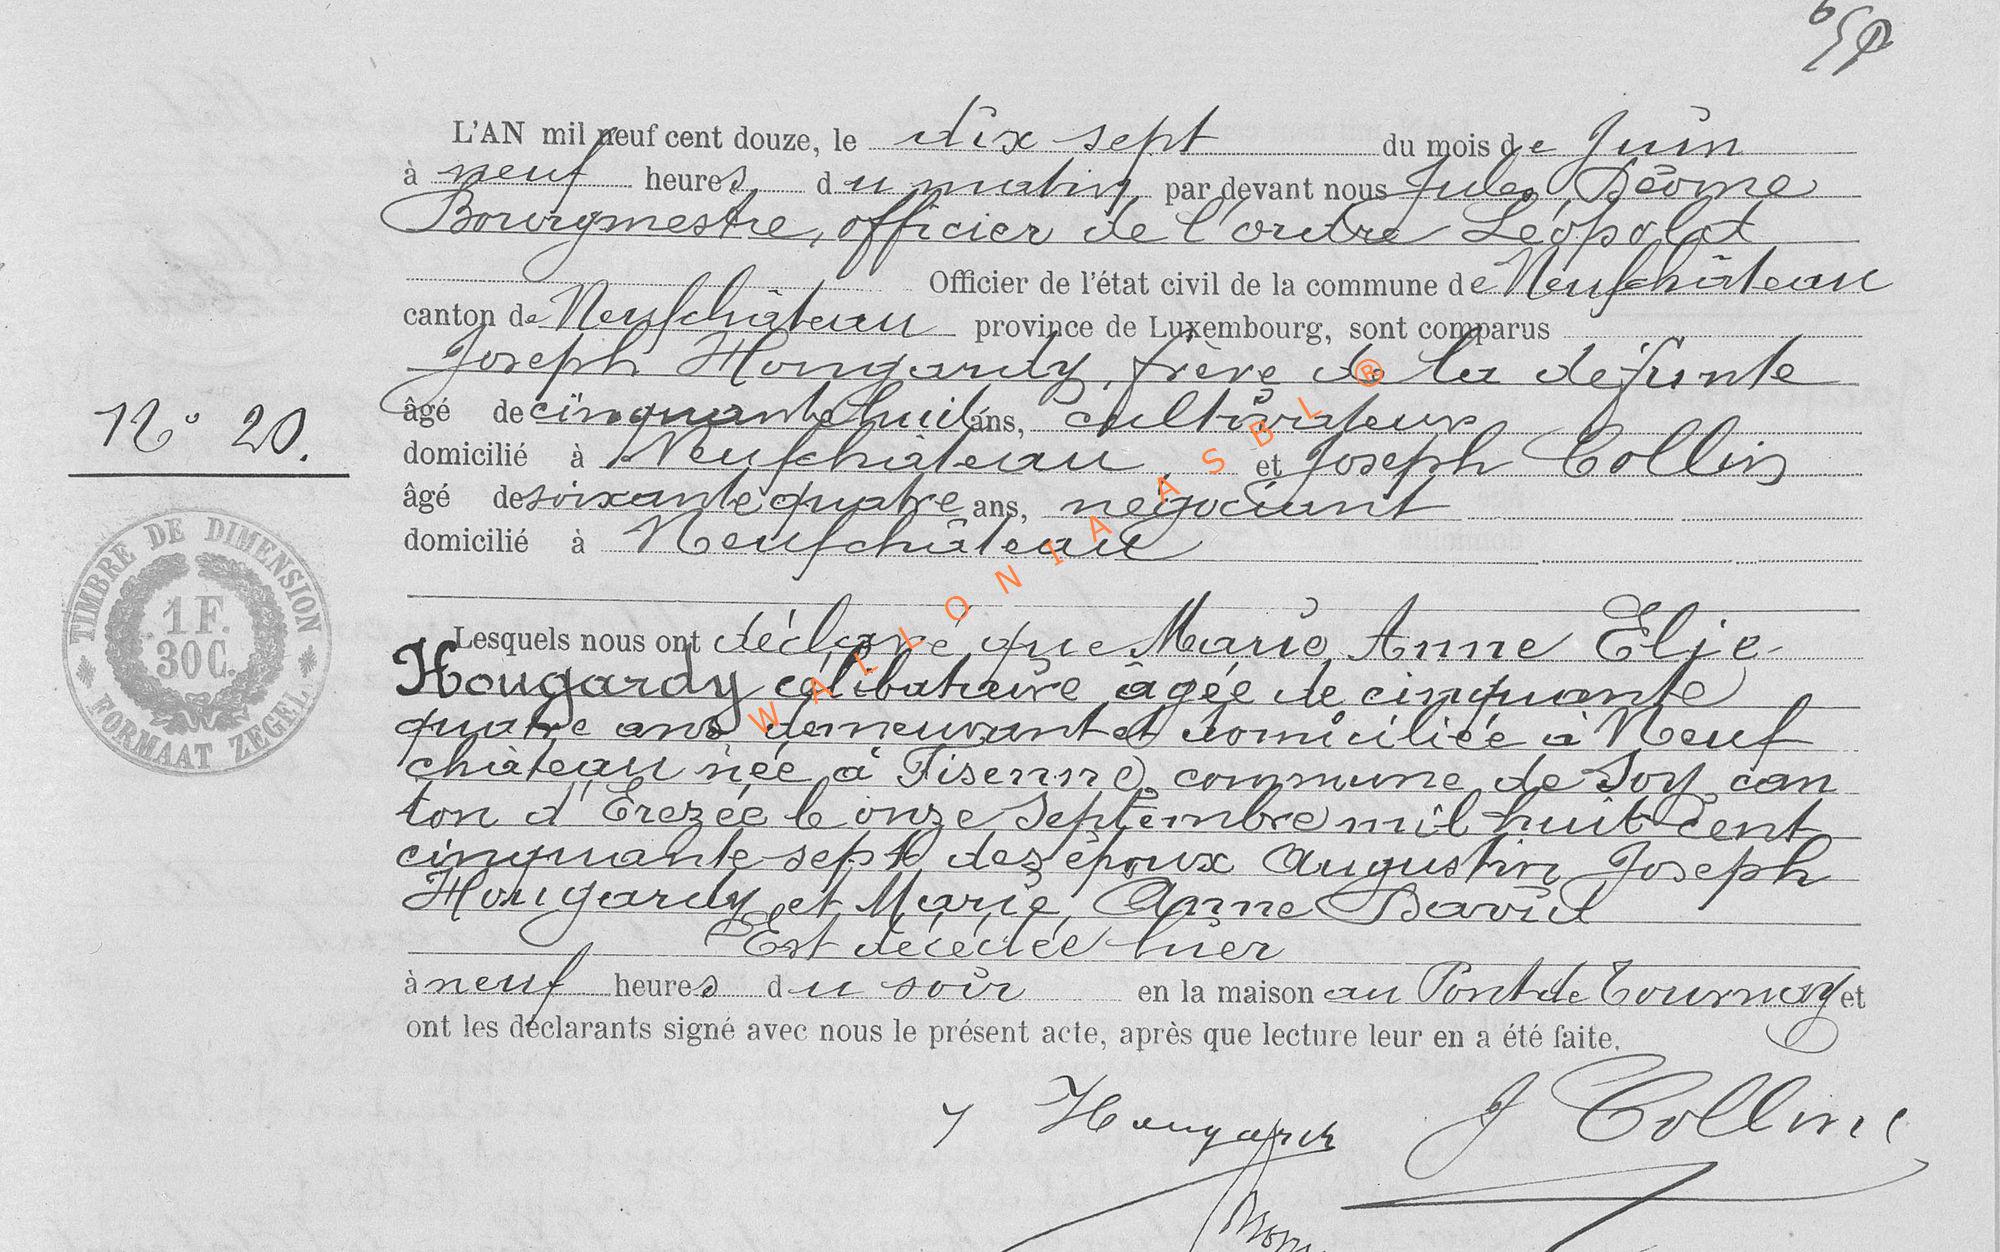 L'AN mil neuf cent douze, le dix sept du mois de Juin
à neuf heures du matin par devant nous Jules
Bourgmestre, officier de l'ordre Léopold
Officier de l'état civil de la commune de Neufchâteau
canton de Neufchâteau province de Luxembourg, sont comparus
Joseph Hougardy, frère de la défunte
âgé de cinquante huit ans, cultivateur
N° 20.
domicilié à Neufchâteau, et Joseph Collin
âgé de soixante quatre ans, négociant
domicilié à Neufchâteau
TIMBRE DE DIMENSION
1 F.
30 C.
FORMAAT ZEGEL
WALLONIA ASBL ®
Lesquels nous ont déclaré que Marie Anne Elie
Hougardy célibataire âgée de cinquante
quatre ans demeurant et domiciliée à Neuf
château née à Fisenne, commune de Soy, can
ton d'Erezée le onze Septembre mil huit cent
cinquante sept des époux Augustin Joseph
Hougardy et Marie Anne David
Est décédée hier
à neuf heures du soir en la maison au Pont de Tournay et
ont les déclarants signé avec nous le présent acte, après que lecture leur en a été faite.
J Hougardy J Collin